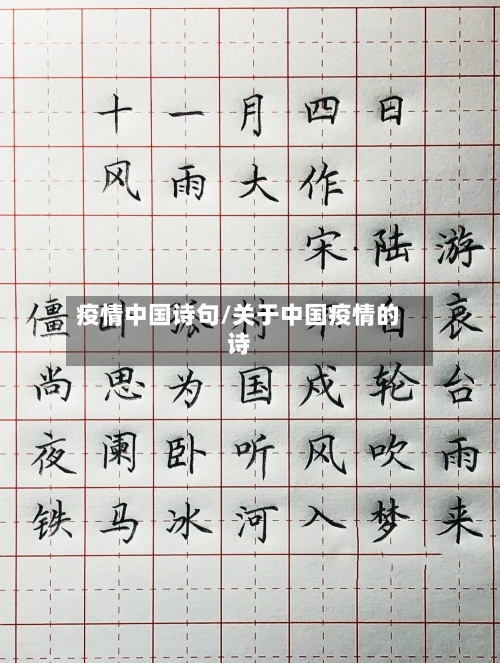 十一月四日
风雨大作
宋·陆游
僵 村 自哀
疫情中国诗句/关于中国疫情的
诗
尚思为国戍轮台
夜阑卧听风吹雨
铁马冰河入梦来